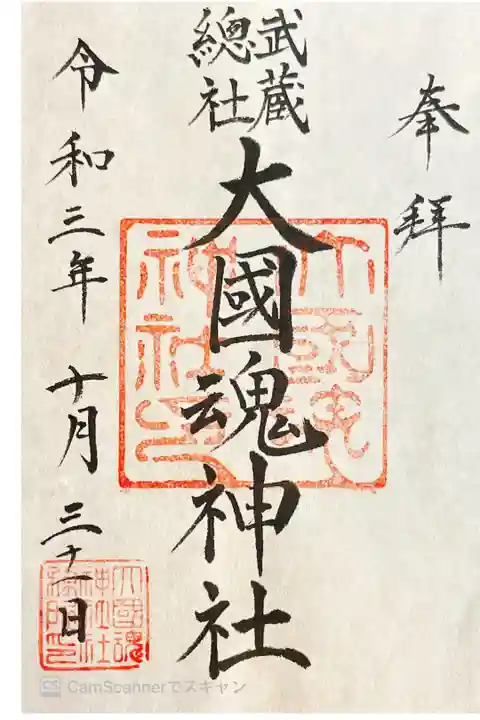 奉拝
武蔵
總社
大國魂神社
令和三年 十月 三十一日
大國魂
神社印
大國魂
神社
CamScannerでスキャン